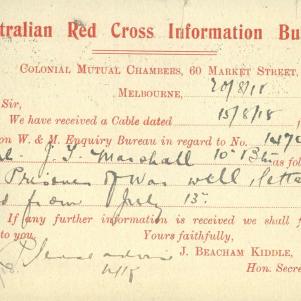 tralian Red Cross Information Bu
COLONIAL MUTUAL CHAMBERS, 60 MARKET STREET,
MELBOURNE, 20/8/18
Sir,
We have received a Cable dated 15/8/18
on W. & M. Enquiry Bureau in regard to No. 147
J. T. Marshall 10 Bn as fo
Prisoner of War well, lette
from July 15.
If any further information is received we shall f
to you. Yours faithfully,
J. BEACHAM KIDDLE,
Hon. Secre